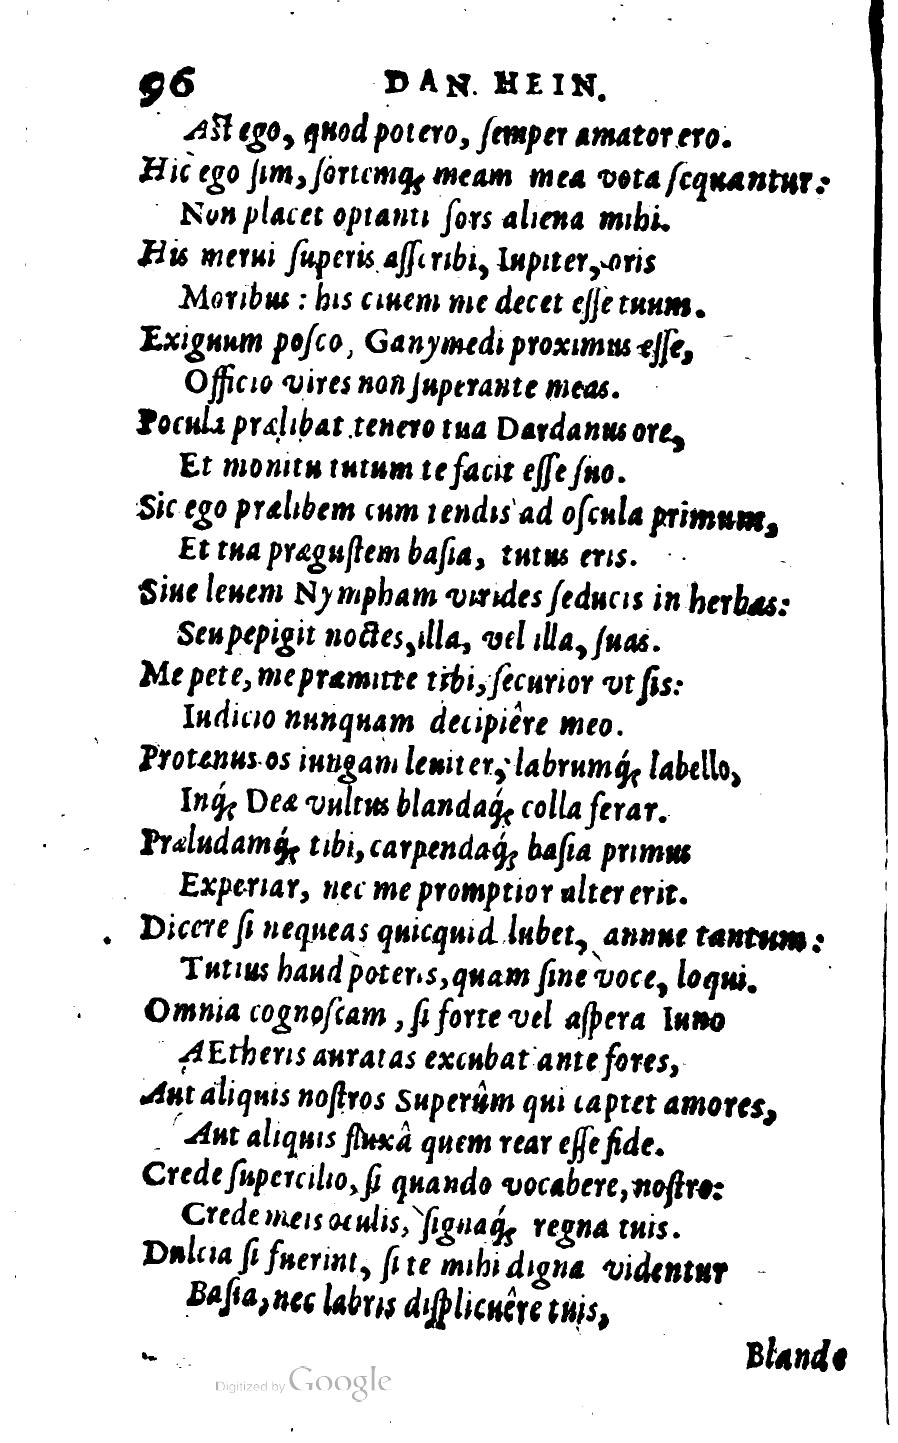 96 DAN. HEIN.
Aſt ego, quod potero, ſemper amator ero.
Hic ego ſim, ſortemq́; meam mea vota ſequantur:
Non placet optanti ſors aliena mihi.
His merui ſuperis aſſcribi, Iupiter, oris
Moribus: his ciuem me decet eſſe tuum.
Exiguum poſco, Ganymedi proximus eſſe,
Officio vires non ſuperante meas.
Pocula prælibat tenero tua Dardanus ore,
Et monitu tutum te facit eſſe ſuo.
Sic ego prælibem cum tendis ad oſcula primum,
Et tua præguſtem baſia, tutus eris.
Siue leuem Nympham virides ſeducis in herbas:
Seu pepigit noctes, illa, vel illa, ſuas.
Me pete, me præmitte tibi, ſecurior vt ſis:
Iudicio nunquam decipiêre meo.
Protenus os iungam leuiter, labrumq́; labello,
Inq́; Deæ vultus blandaq́; colla ferar.
Præludamq́; tibi, carpendaq́; baſia primus
Experiar, nec me promptior alter erit.
Dicere ſi nequeas quicquid lubet, annue tantum:
Tutius haud poteris, quam ſine voce, loqui.
Omnia cognoſcam, ſi forte vel aſpera Iuno
AEtheris auratas excubat ante fores,
Aut aliquis noſtros Superûm qui captet amores,
Aut aliquis fluxâ quem rear eſſe fide.
Crede ſupercilio, ſi quando vocabere, noſtro:
Crede meis oculis, ſignaq́; regna tuis.
Dulcia ſi fuerint, ſi te mihi digna videntur
Baſia, nec labris diſplicuêre tuis,
Blande
Digitized by Google